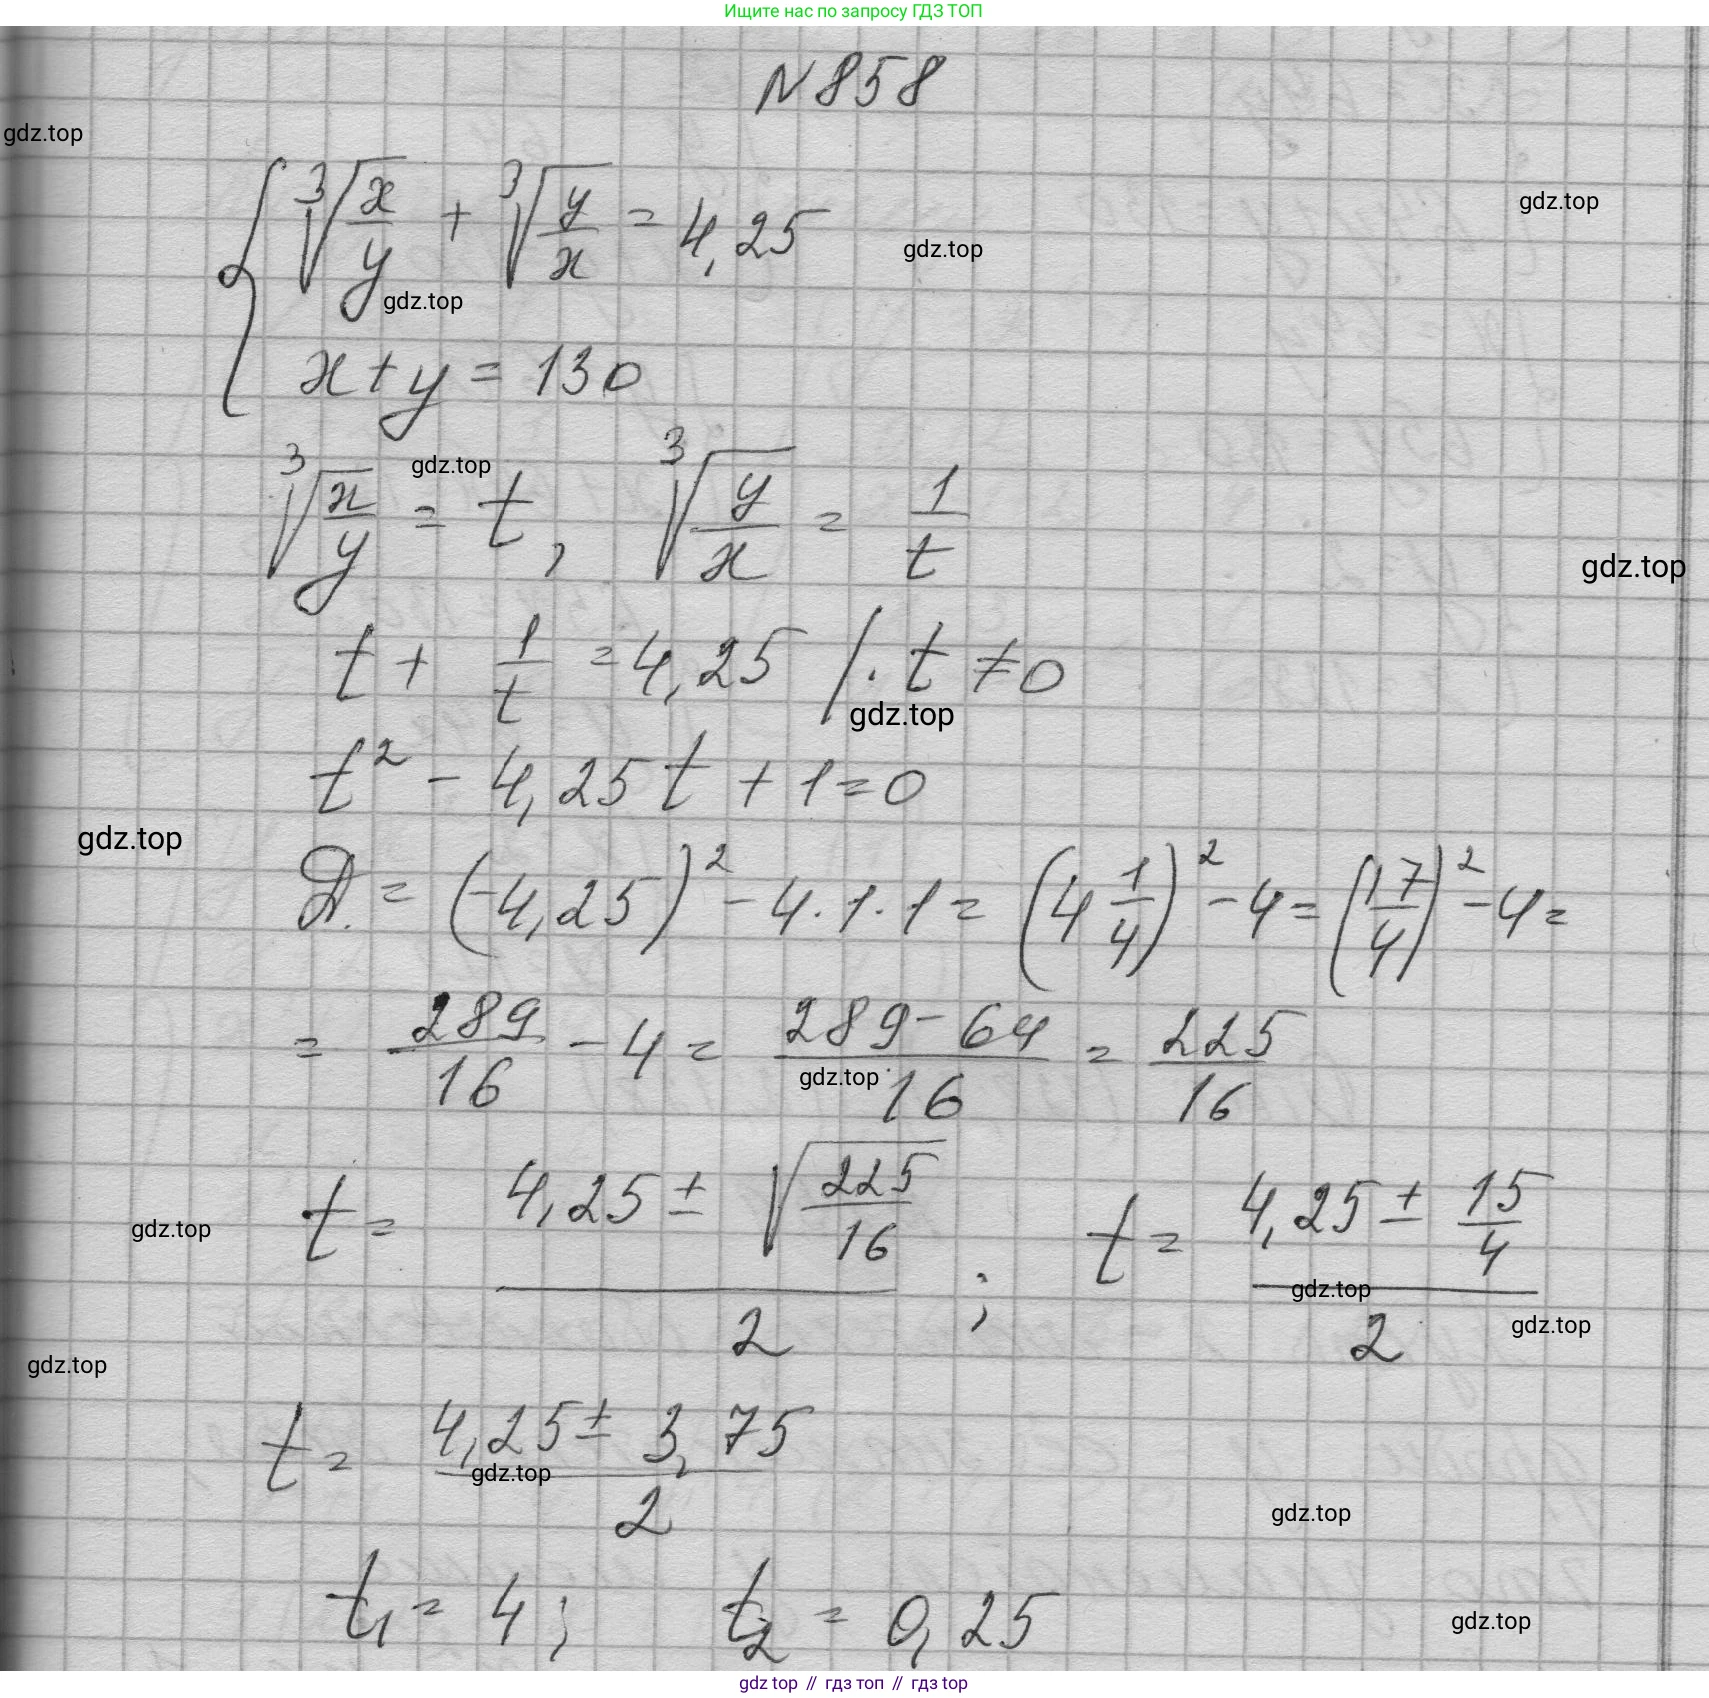 Ищите нас по запросу ГДЗ ТОП
N 858
gdz.top
∛(x/y) + ∛(y/x) = 4,25
gdz.top
gdz.top
gdz.top
x + y = 130
∛(x/y) = t, ∛(y/x) = 1/t
gdz.top
gdz.top
t + 1/t = 4,25 / · t ≠ 0
gdz.top
t² - 4,25t + 1 = 0
gdz.top
Д. = (-4,25)² - 4·1·1 = (4 1/4)² - 4 = (17/4)² - 4 =
= 289/16 - 4 = (289 - 64)/16 = 225/16
gdz.top
t = (4,25 ± √(225/16))/2 ; t = (4,25 ± 15/4)/2
gdz.top
gdz.top
gdz.top
gdz.top
t = (4,25 ± 3,75)/2
gdz.top
gdz.top
t₁ = 4; t₂ = 0,25
gdz.top
gdz top // гдз топ // гдз.top